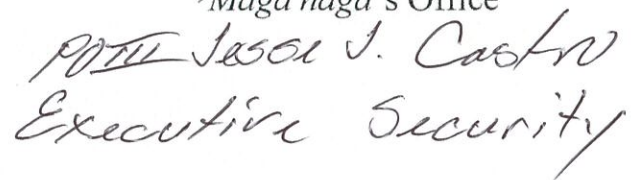 Maga'håga's Office
POIII Jesse J. Castro
Executive Security